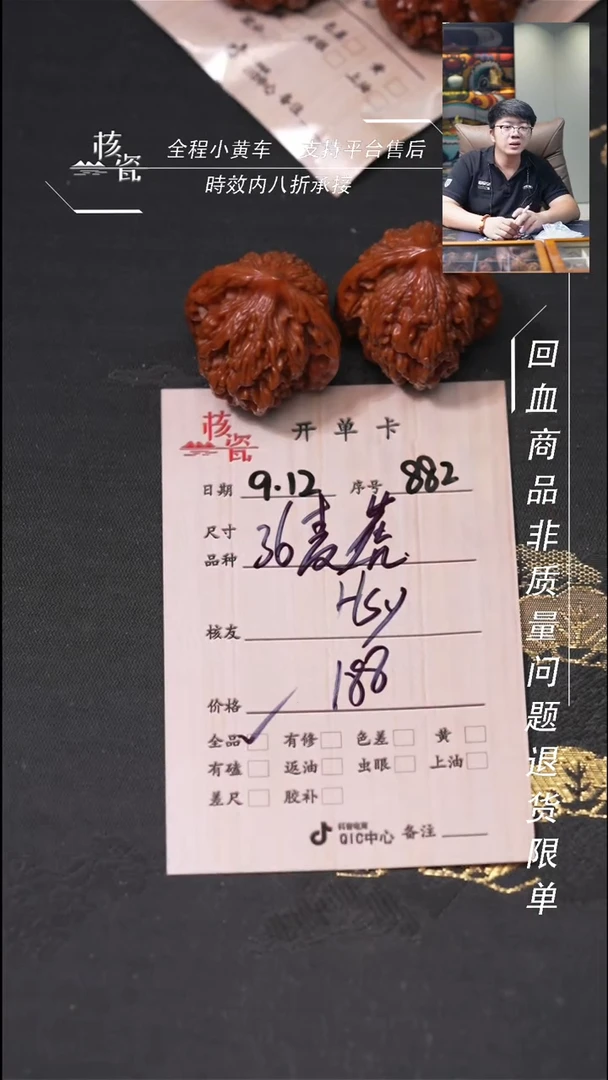 色差 黄
上油
中心 备注
核瓷
全程小黄车 支持平台售后
時效内八折承接
回血商品非质量问题退货限单
核瓷 开单卡
日期 9.12 序号 882
尺寸
品种 36麦虎
Hsy
核友
188
价格
全品 有修 色差 黄
有磕 返油 虫眼 上油
差尺 胶补
抖音电商
QIC中心 备注